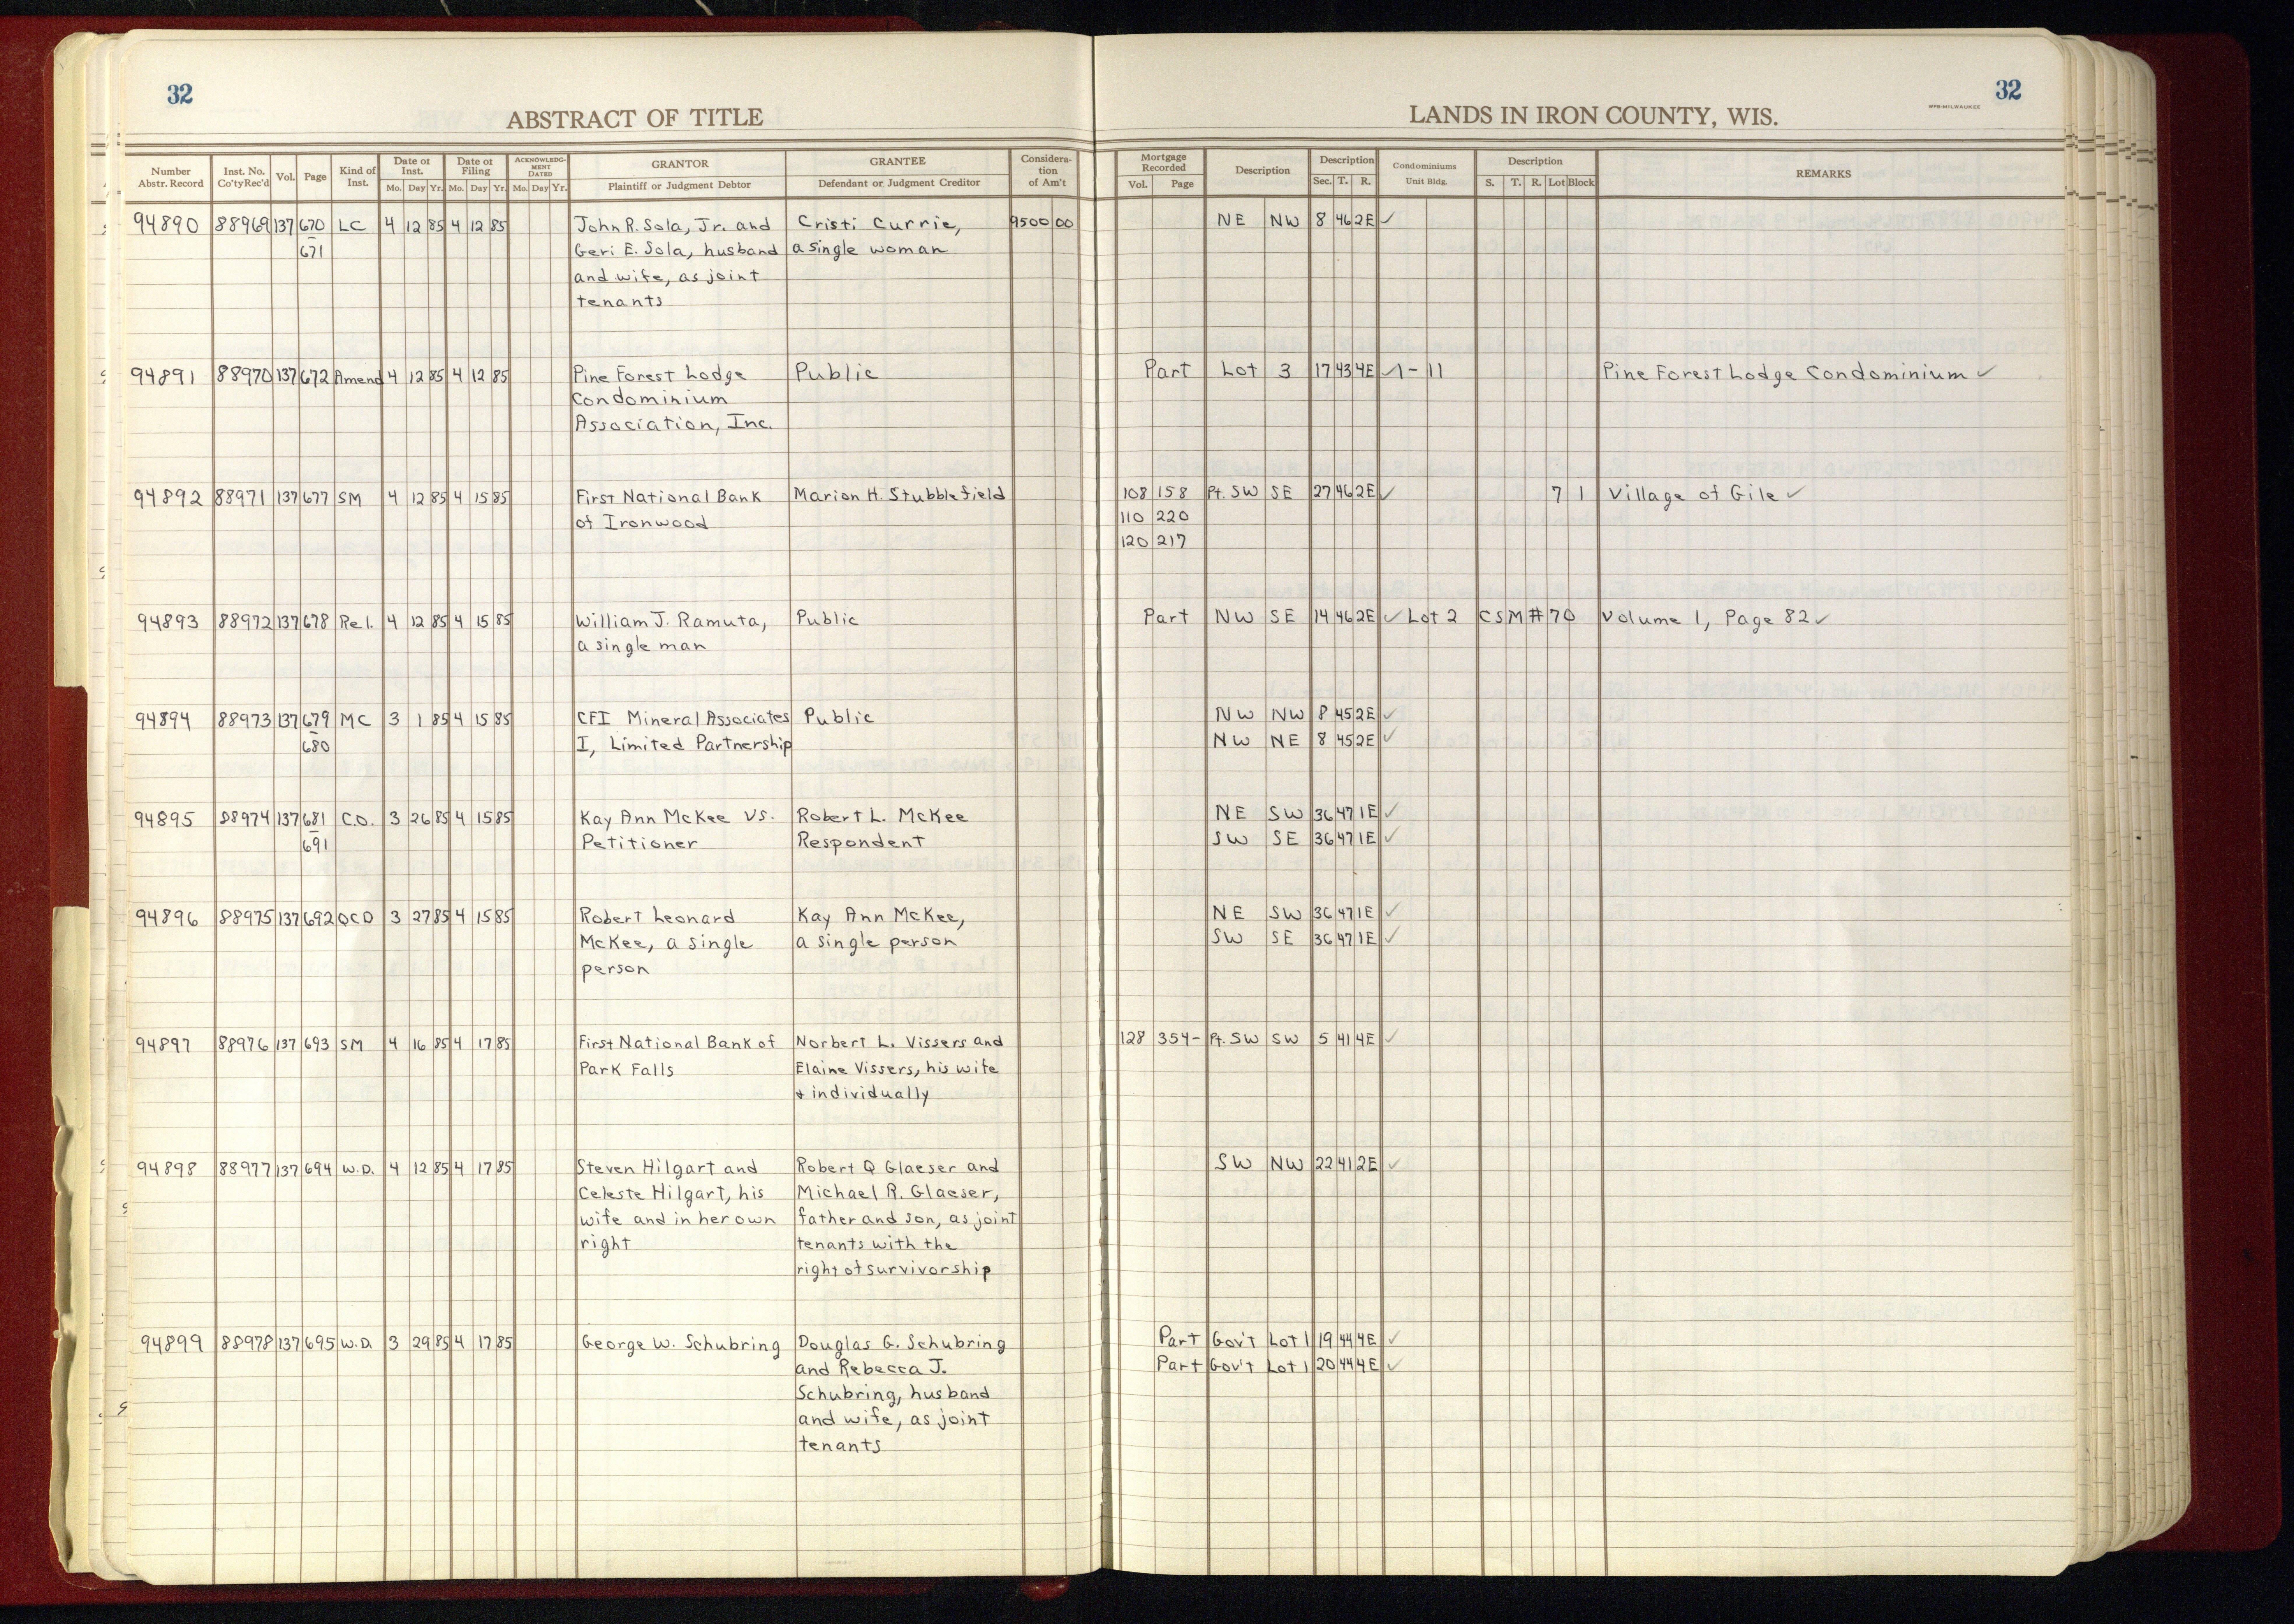 32
ABSTRACT OF TITLE
Number Abstr. Record Inst. No. Co'ty Rec'd Vol. Page Kind of Inst. Date of Inst. Mo. Day Yr. Date of Filing Mo. Day Yr. ACKNOWLEDGMENT DATED Mo. Day Yr. GRANTOR Plaintiff or Judgment Debtor GRANTEE Defendant or Judgment Creditor Consideration of Am't
94890 88969 137 670 LC 4 12 85 4 12 85 John R. Sola, Jr. and Cristi Currie, 9500 00
671 Geri E. Sola, husband a single woman
and wife, as joint
tenants
94891 88970 137 672 Amend 4 12 85 4 12 85 Pine Forest Lodge Public
Condominium
Association, Inc.
94892 88971 137 677 SM 4 12 85 4 15 85 First National Bank Marion H. Stubblefield
of Ironwood
94893 88972 137 678 Rel. 4 12 85 4 15 85 William J. Ramuta, Public
a single man
94894 88973 137 679 MC 3 1 85 4 15 85 CFI Mineral Associates Public
680 I, Limited Partnership
94895 88974 137 681 C.O. 3 26 85 4 15 85 Kay Ann McKee vs. Robert L. McKee
691 Petitioner Respondent
94896 88975 137 692 QCD 3 27 85 4 15 85 Robert Leonard Kay Ann McKee,
McKee, a single a single person
person
94897 88976 137 693 SM 4 16 85 4 17 85 First National Bank of Norbert L. Vissers and
Park Falls Elaine Vissers, his wife
& individually
94898 88977 137 694 W.D. 4 12 85 4 17 85 Steven Hilgart and Robert Q Glaeser and
Celeste Hilgart, his Michael R. Glaeser,
wife and in her own father and son, as joint
right tenants with the
right of survivorship
94899 88978 137 695 W.D. 3 29 85 4 17 85 George W. Schubring Douglas G. Schubring
and Rebecca J.
Schubring, husband
and wife, as joint
tenants
32
MPB-MILWAUKEE
LANDS IN IRON COUNTY, WIS.
Mortgage Recorded Vol. Page Description Description Sec. T. R. Condominiums Unit Bldg. Description S. T. R. Lot Block REMARKS
NE NW 8 46 2E ✓
Part Lot 3 17 43 4E ✓ 1-11 Pine Forest Lodge Condominium ✓
108 158 Pt. SW SE 27 46 2E ✓ 7 1 Village of Gile ✓
110 220
120 217
Part NW SE 14 46 2E ✓ Lot 2 CSM # 70 Volume 1, Page 82 ✓
NW NW 8 45 2E ✓
NW NE 8 45 2E ✓
NE SW 36 47 1E ✓
SW SE 36 47 1E ✓
NE SW 36 47 1E ✓
SW SE 36 47 1E ✓
128 354- Pt. SW SW 5 41 4E ✓
SW NW 22 41 2E ✓
Part Gov't Lot 1 19 44 4E ✓
Part Gov't Lot 1 20 44 4E ✓